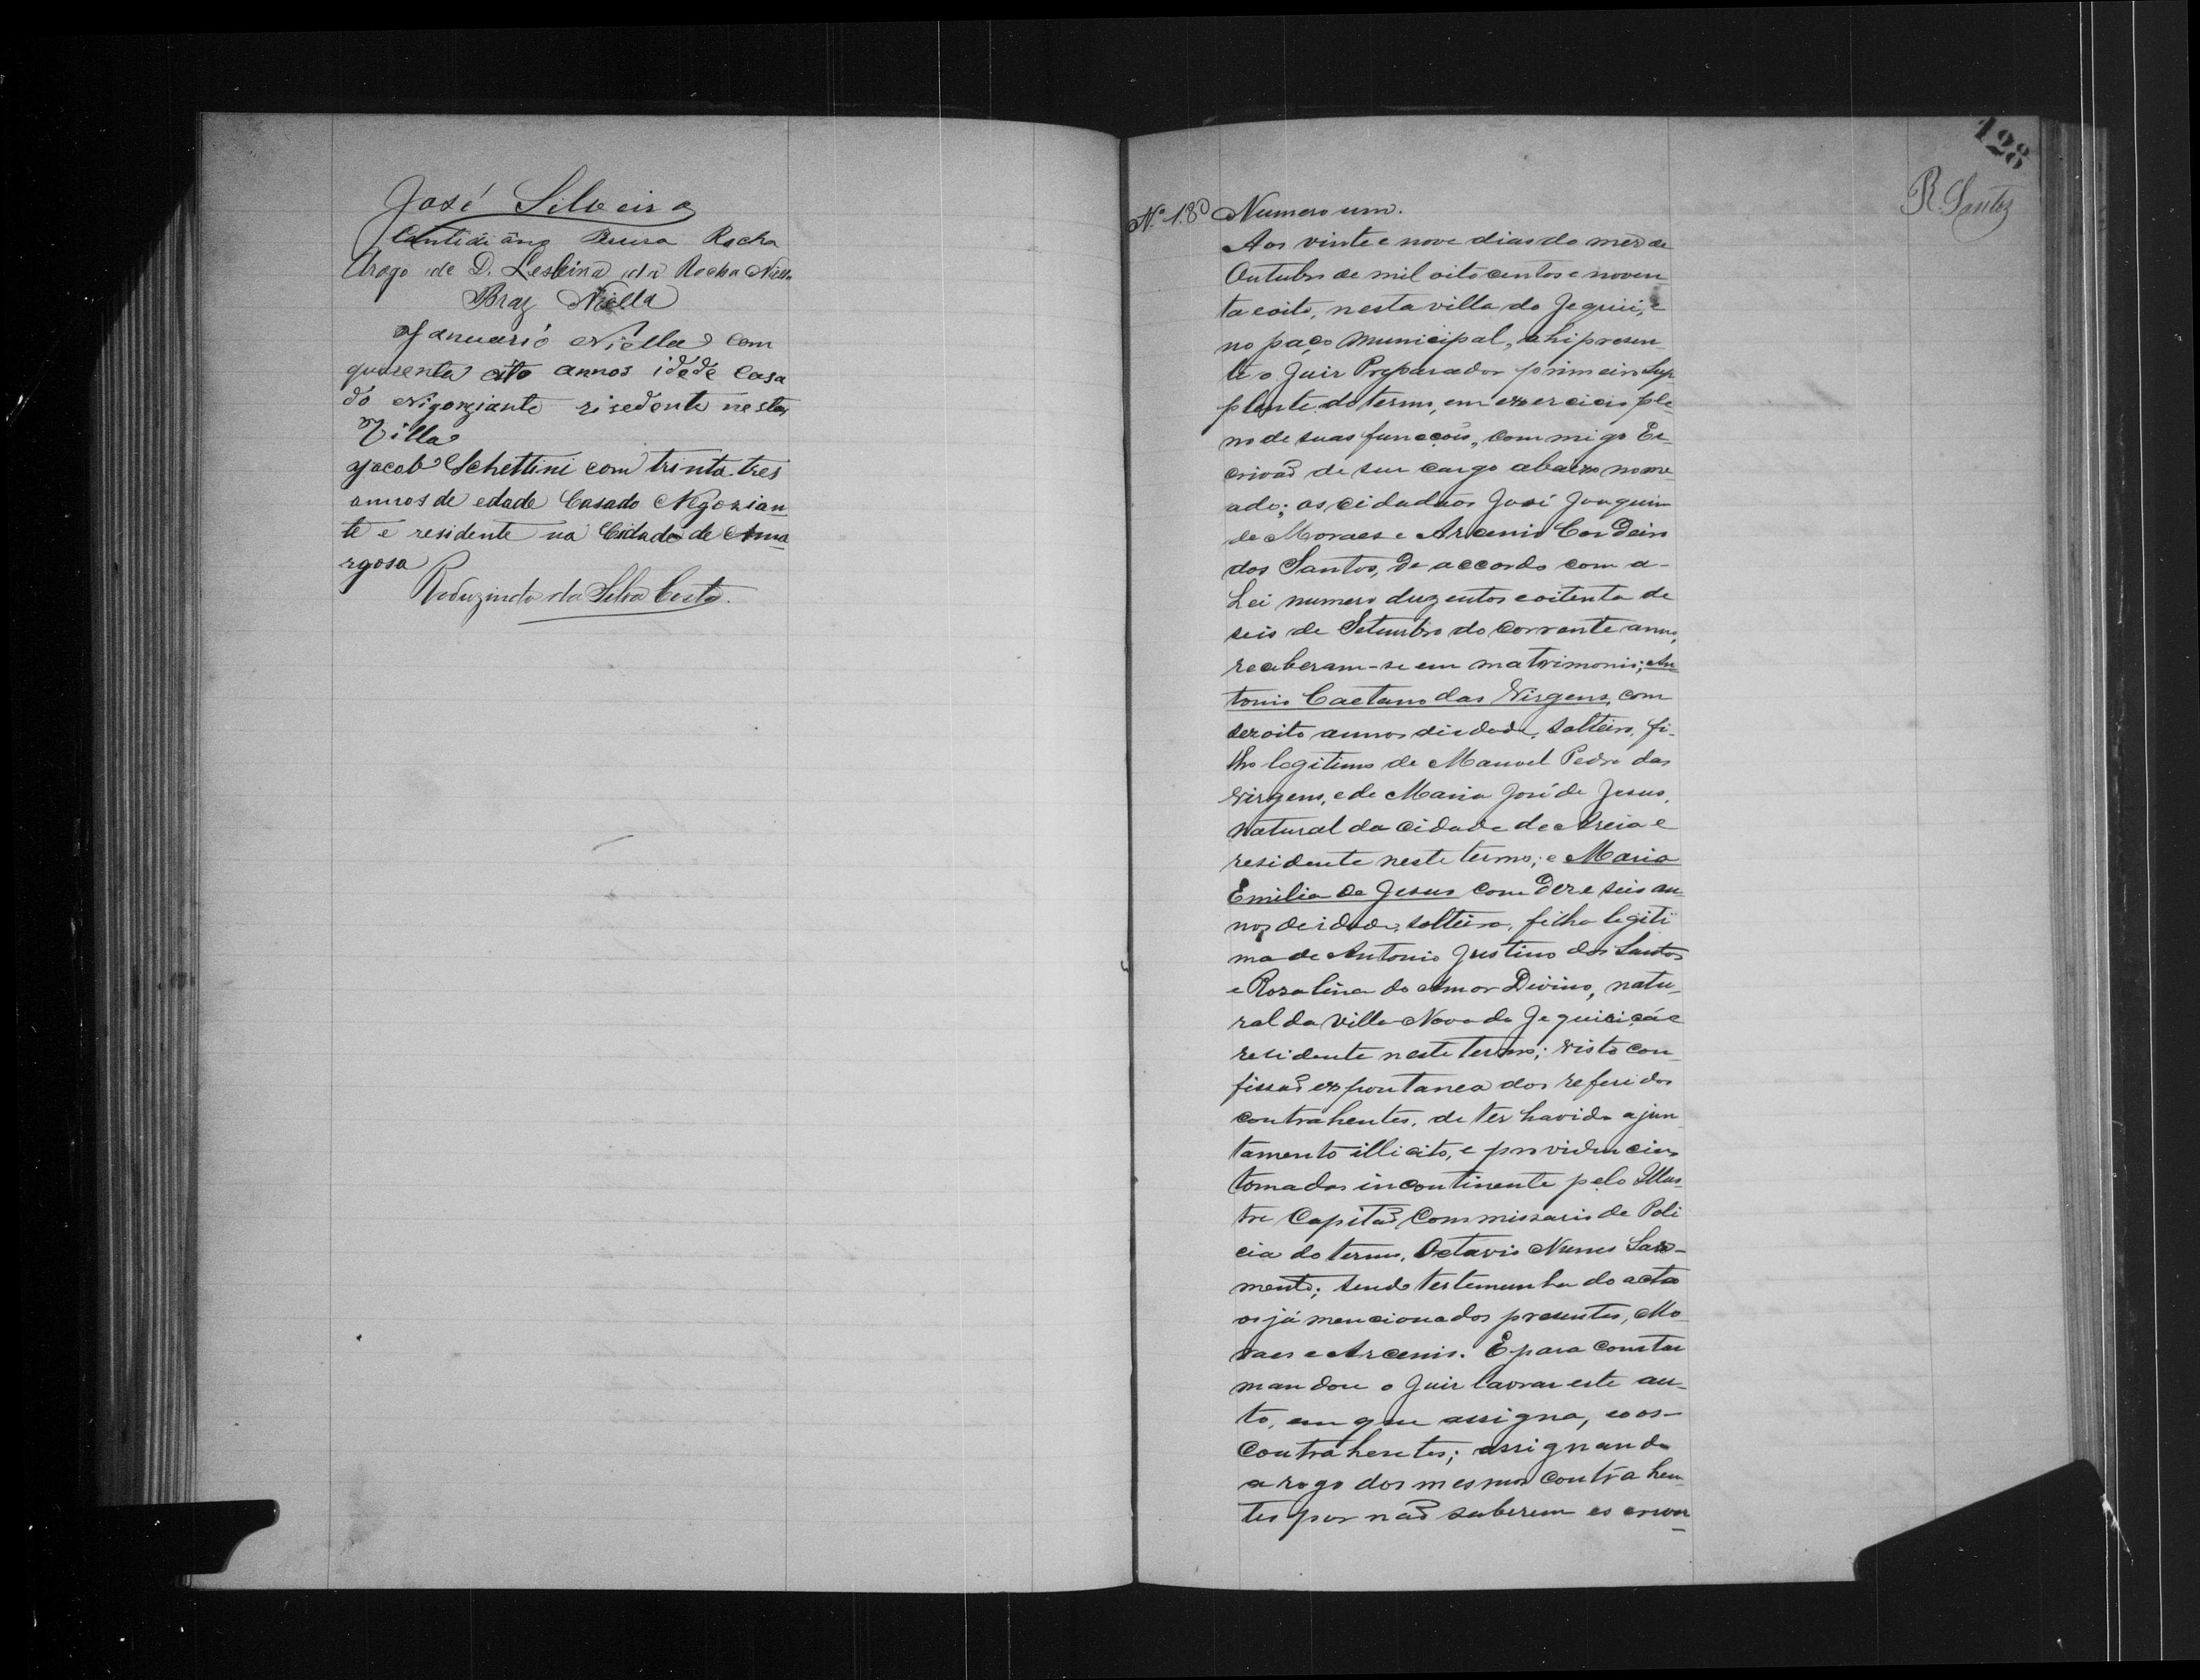 José Silveira
Cantidiano Rocha
Arogo de D. Lesbina da Rocha Niella
Braz Niella
Januario Niella com
quarenta oito annos idede Casa
do Nigonziante risedente nesta
Villa
Jacob Schettini com trinta tres
annos de edade Casado Negozian
te e residente na Cidade de Ama
rgosa
Roduzindo da Silva Costa.
128
R. Santos
Nº 1.8º Numero um.
Aos vinte e nove dias do mez de
Outubro de mil oitocentos e noven
ta e oito, nesta villa do Jequié, e
no paço Municipal, ahi presen
te o Juiz Preparador primeiro Sup
plente do termo, em exercicio ple
no de suas funcções, commigo Es
crivão de seu cargo abaixo nome
ado; os cidadãos José Joaquim
de Moraes e Arcenio Cordeiro
dos Santos, de accordo com a-
Lei numero duzentos e oitenta de
seis de Setembro do corrente anno,
receberam-se em matrimonio; An
tonio Caetano das Virgens, com
dezoito annos di edade, solteiro, fi-
lho legitimo de Manoel Pedro das
Virgens, e de Maria José de Jesus,
natural da cidade de Areia e
residente neste termo; e Maria
Emilia de Jesus com deze seis an
nos de idade, solteira, filha legiti
ma de Antonio Justino dos Santos
e Rosalina do Amor Divino, natu-
ral da Villa Nova de Jequiriçá e
residente neste termo; visto con
fissão expontanea dos referidos
contrahentes, de ter havido ajun
tamento illicito, e providencias
tomadas incontinente pelo Illus
tre Capitão Commissario de Poli
cia do termo, Octavio Nunes Sar-
mento; sendo testemunha do acto
os já mencionados presentes, Mo
raes e Arcenio. E para constar
mandou o Juiz lavrar este au-
to, em que assigna, e os-
Contrahentes; assignando
a rogo dos mesmos Contrahen
tes por não saberem es crever